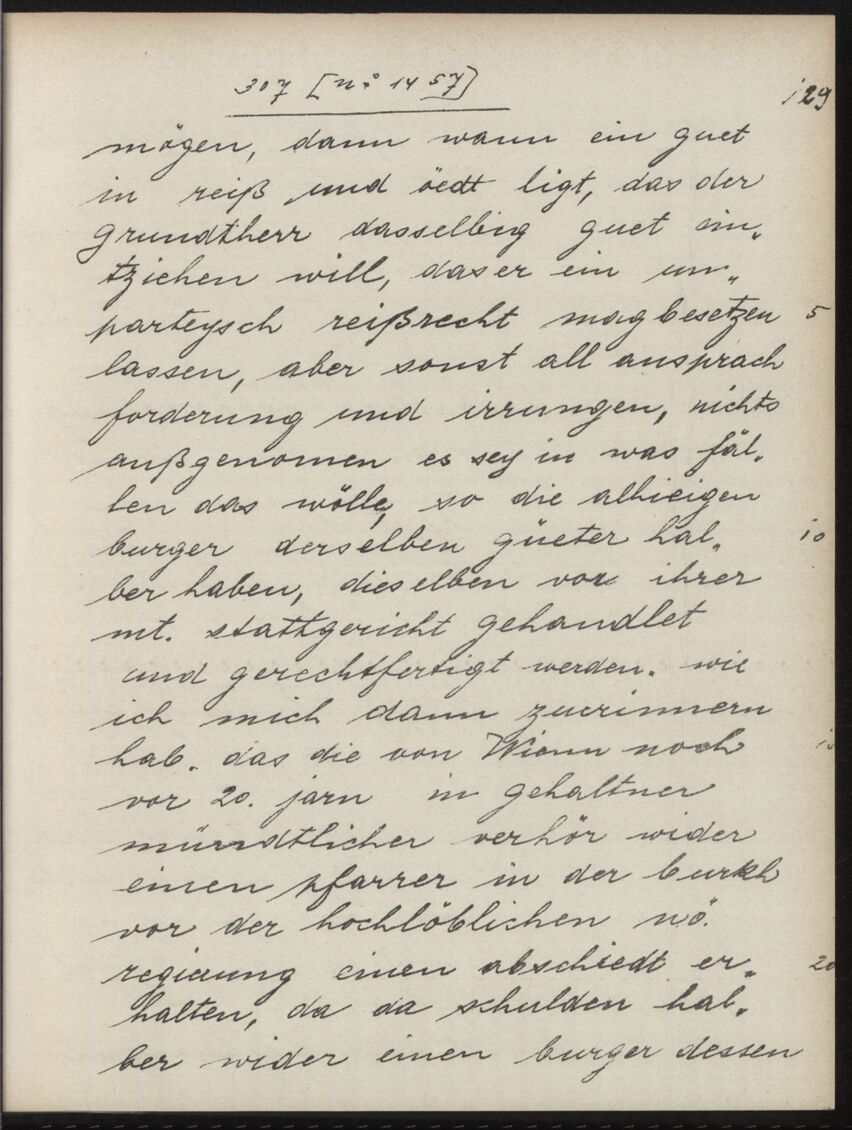 307 [nº 1457]
129
mögen, dann wann ein guet
in reiß und öedt ligt, das der
grundtherr dasselbig guet ein„
tziehen will, das er ein un„
parteysch reißrecht mag besetzen 5
lassen, aber sonst all ansprach
forderung und irrungen, nichts
außgenomen es sey in was fäl„
len das wölle, so die alhieigen
burger derselben güeter hal„ 10
ber haben, dieselben vor ihrer
mt. stattgericht gehandlet
und gerechtfertigt werden. wie
ich mich dann zuerinnern
hab. das die von Wienn noch
vor 20. jarn in gehaltner
müendtlicher verhör wider
einen pfarrer in der burkh
vor der hochlöblichen nö.
regierung einen abschiedt er„ 20
halten, da da schulden hal„
ber wider einen burger dessen